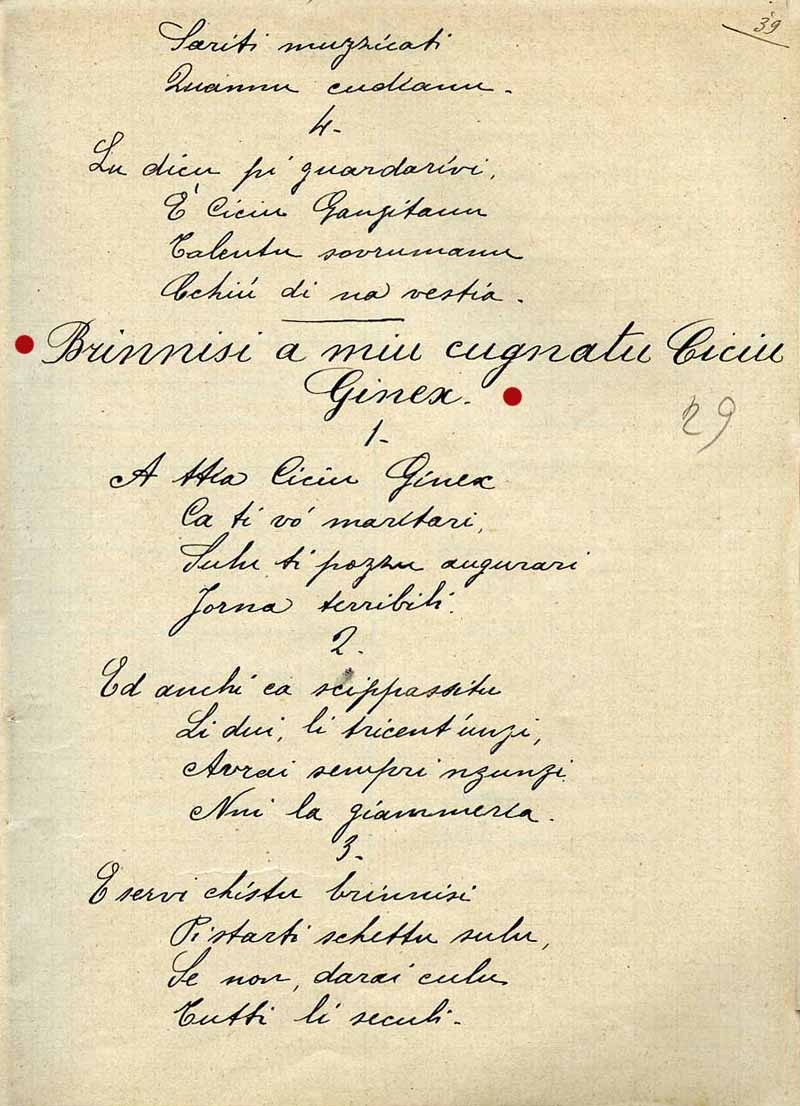 39
Sariti muzzicati
Quannu cudianu.
4.
Lu dicu pi guardarivi,
È Ciciu Gangitanu
Talentu sovrumanu
Cchiú di na vestia.
Brinnisi a miu cugnatu Ciciu
Ginex.
29
1.
A ttia Ciciu Ginex
Ca ti vó maritari,
Sulu ti pozzu augurari
Jorna terribili.
2.
Ed anchi ca scippassitu
Li dui, li tricent'unzi,
Avrai sempri nzunzi
Nni la giammeria.
3.
E servi chistu brinnisi
Pi starti schettu sulu,
Se non, darai culu
Tutti li seculi.